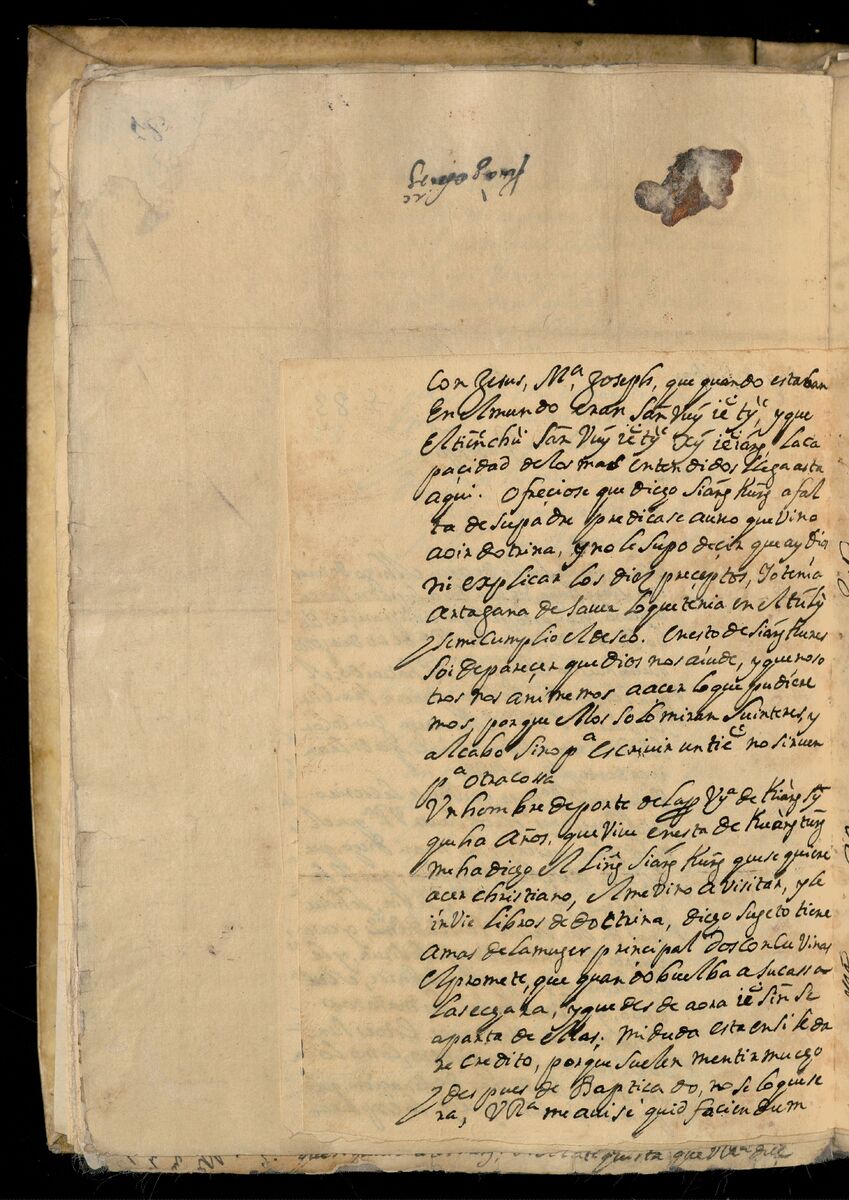 con Jesus, M.ª, Joseph, que quando estaban
en el mundo eran Sañ Vuý iĕ týͨ, y que
el tiēnchù Sañ Vuý iĕ týͨ iĕ iáng, la ca
pacidad de los mas entendidos llega asta
aqui. Ofreciose que diego Siāng Kūng a fal
ta de su padre predicase a uno que vino
a oir dotrina, y no le supo deçir que ay Dios
ni explicar los diez preceptos, Yo tenia
arta gana de saver lo que tenia en el
y se me cumplio el deseo. en esto de Siāng Kunes
soi de pareçer que dios nos aiude, y que noso
tros nos animemos a acer lo que pudiere
mos, porque ellos solo miran su interes, y
al cabo sino pª escrivir un tiĕ no sirven
pª otra cossa
Un hombre de porte de la Vª de Kiāng sȳ
que ha años, que vive en esta de Kuàng tūng
me ha diego el Lińg Siāng Kūng que se quiere
acer christiano, el me vino a visitar, y le
invie libros de doctrina, diego sugeto tiene
a mas de la muger principal dos concuvinas
el promete, que quando buelba a su cassa
las echara, y que desde aora iĕ siñ se
aparta de ellas. mi duda esta en si le da
re credito, porque suelen mentir mucho
y despues de Baptiçado, no se lo que se
ra, VRª me avise quid faciendum